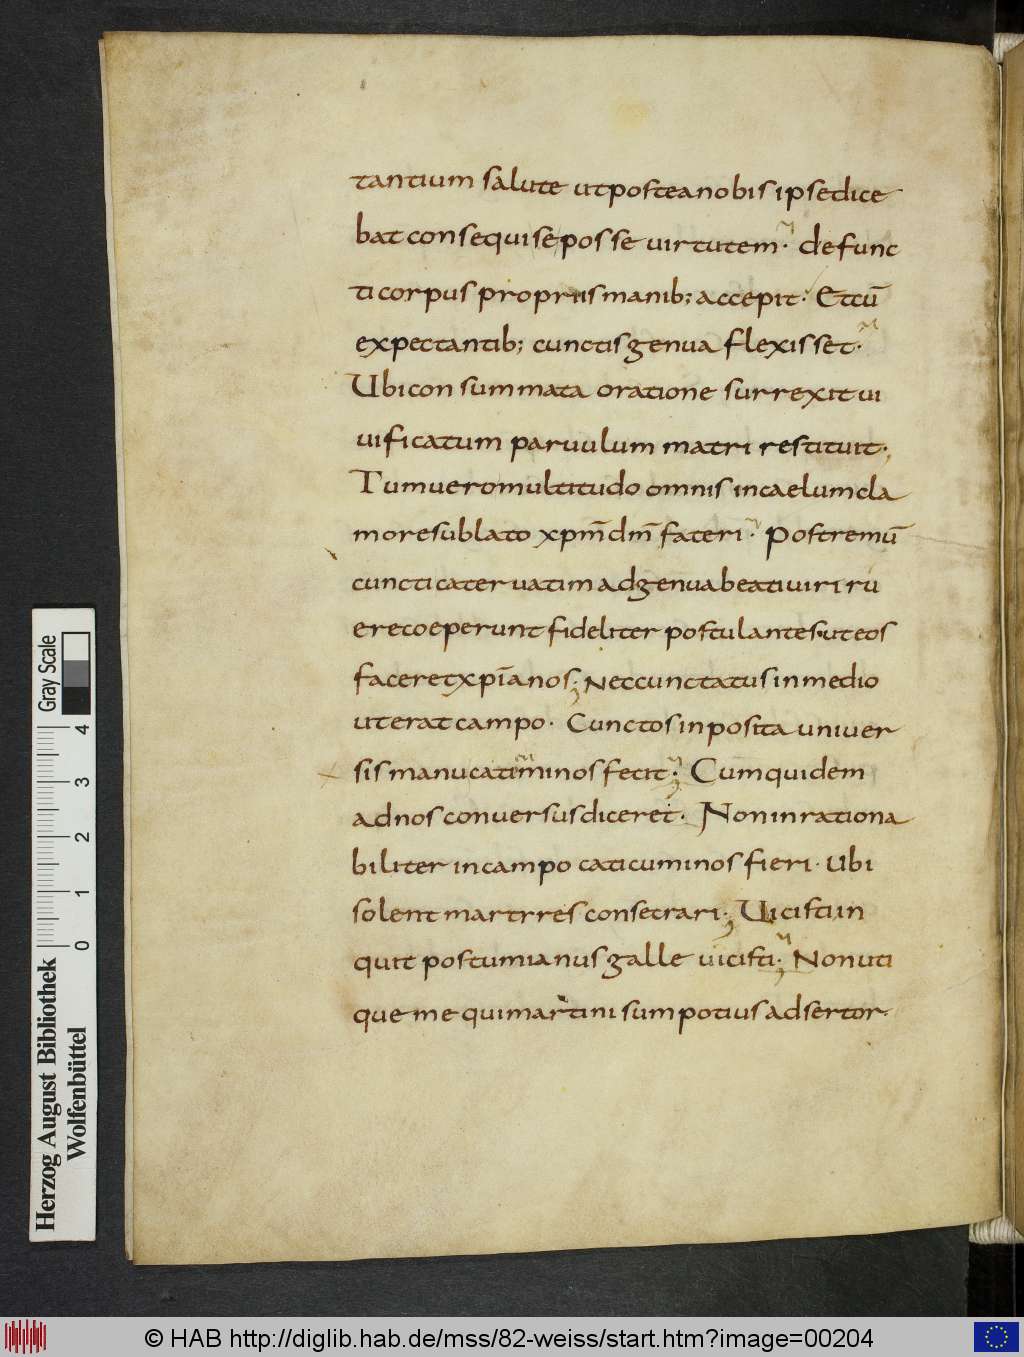 tantium salute ut postea nobis ipse dice
bat consequi se posse virtutem. defunc
ti corpus propriis manib; accepit. Et cū
expectantib; cunctis genua flexisset.
Ubi consummata oratione surrexit vi
vificatum parvulum matri restituit.
Tum vero multitudo omnis in caelum cla
more sublato xpm̄ dm̄ fateri. Postremū
cuncti catervatim ad genua beati viri ru
ere coeperunt fideliter postulantes. ut eos
faceret xp̄ianos; Nec cunctatus in medio
ut erat campo. Cunctos inposita univer
sis manu cateminos fecit; Cum quidem
ad nos conversus diceret. Non inrationa
biliter in campo caticuminos fieri. Ubi
solent martyres consecrari; Vicisti in
quit postumianus galle vicisti; Non uti
que me qui martini sum potius adsertor.
Gray Scale
4 3 2 1 0
Herzog August Bibliothek
Wolfenbüttel
© HAB http://diglib.hab.de/mss/82-weiss/start.htm?image=00204